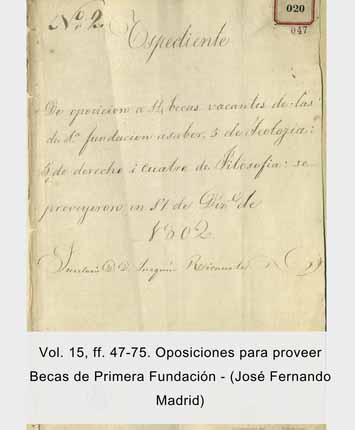 020
047
No. 2.
Expediente
De oposicion a 14 becas vacantes de las
de 1a. fundacion a saber, 5 de Teologia:
5 de derecho i cuatro de Filosofia: se
proveyeron en 31 de Dive. de
1802
D. D. Joaquin
Vol. 15, ff. 47-75. Oposiciones para proveer
Becas de Primera Fundación - (José Fernando
Madrid)